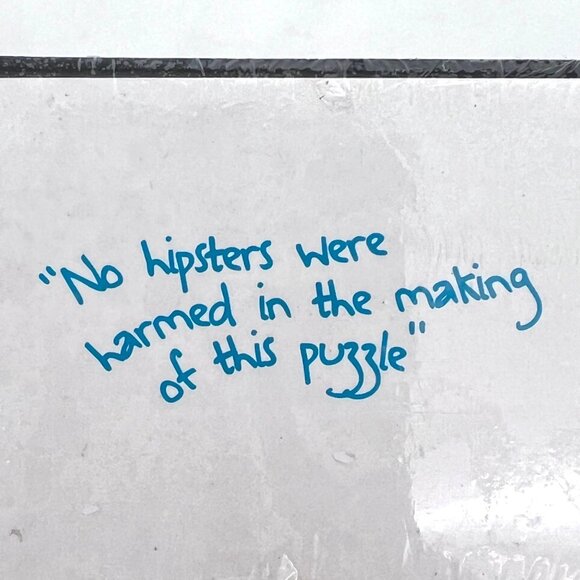 "No hipsters were
harmed in the making
of this puzzle"